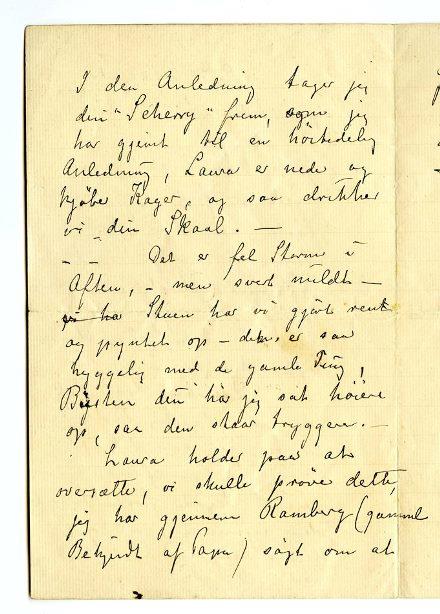 I den Anledning tager jeg
din "Scherry" frem, som jeg
har gjemt til en høitidelig
Anledning, Laura er nede og
kjøber Kager, og saa drikker
vi din Skaal. —
— — Det er fel Storm i
Aften, – men svært mildt –
vi ha Stuen har vi gjort rent
og pyntet op – den er saa
hyggelig med de gamle Ting,
Bysten din har jeg sat høiere
op, saa den staar tryggere. –
Laura holder paa at
oversætte, vi skulle prøve dette,
jeg har gjennem Ramberg (gammel
Bekjendt af Papa) søgt om at